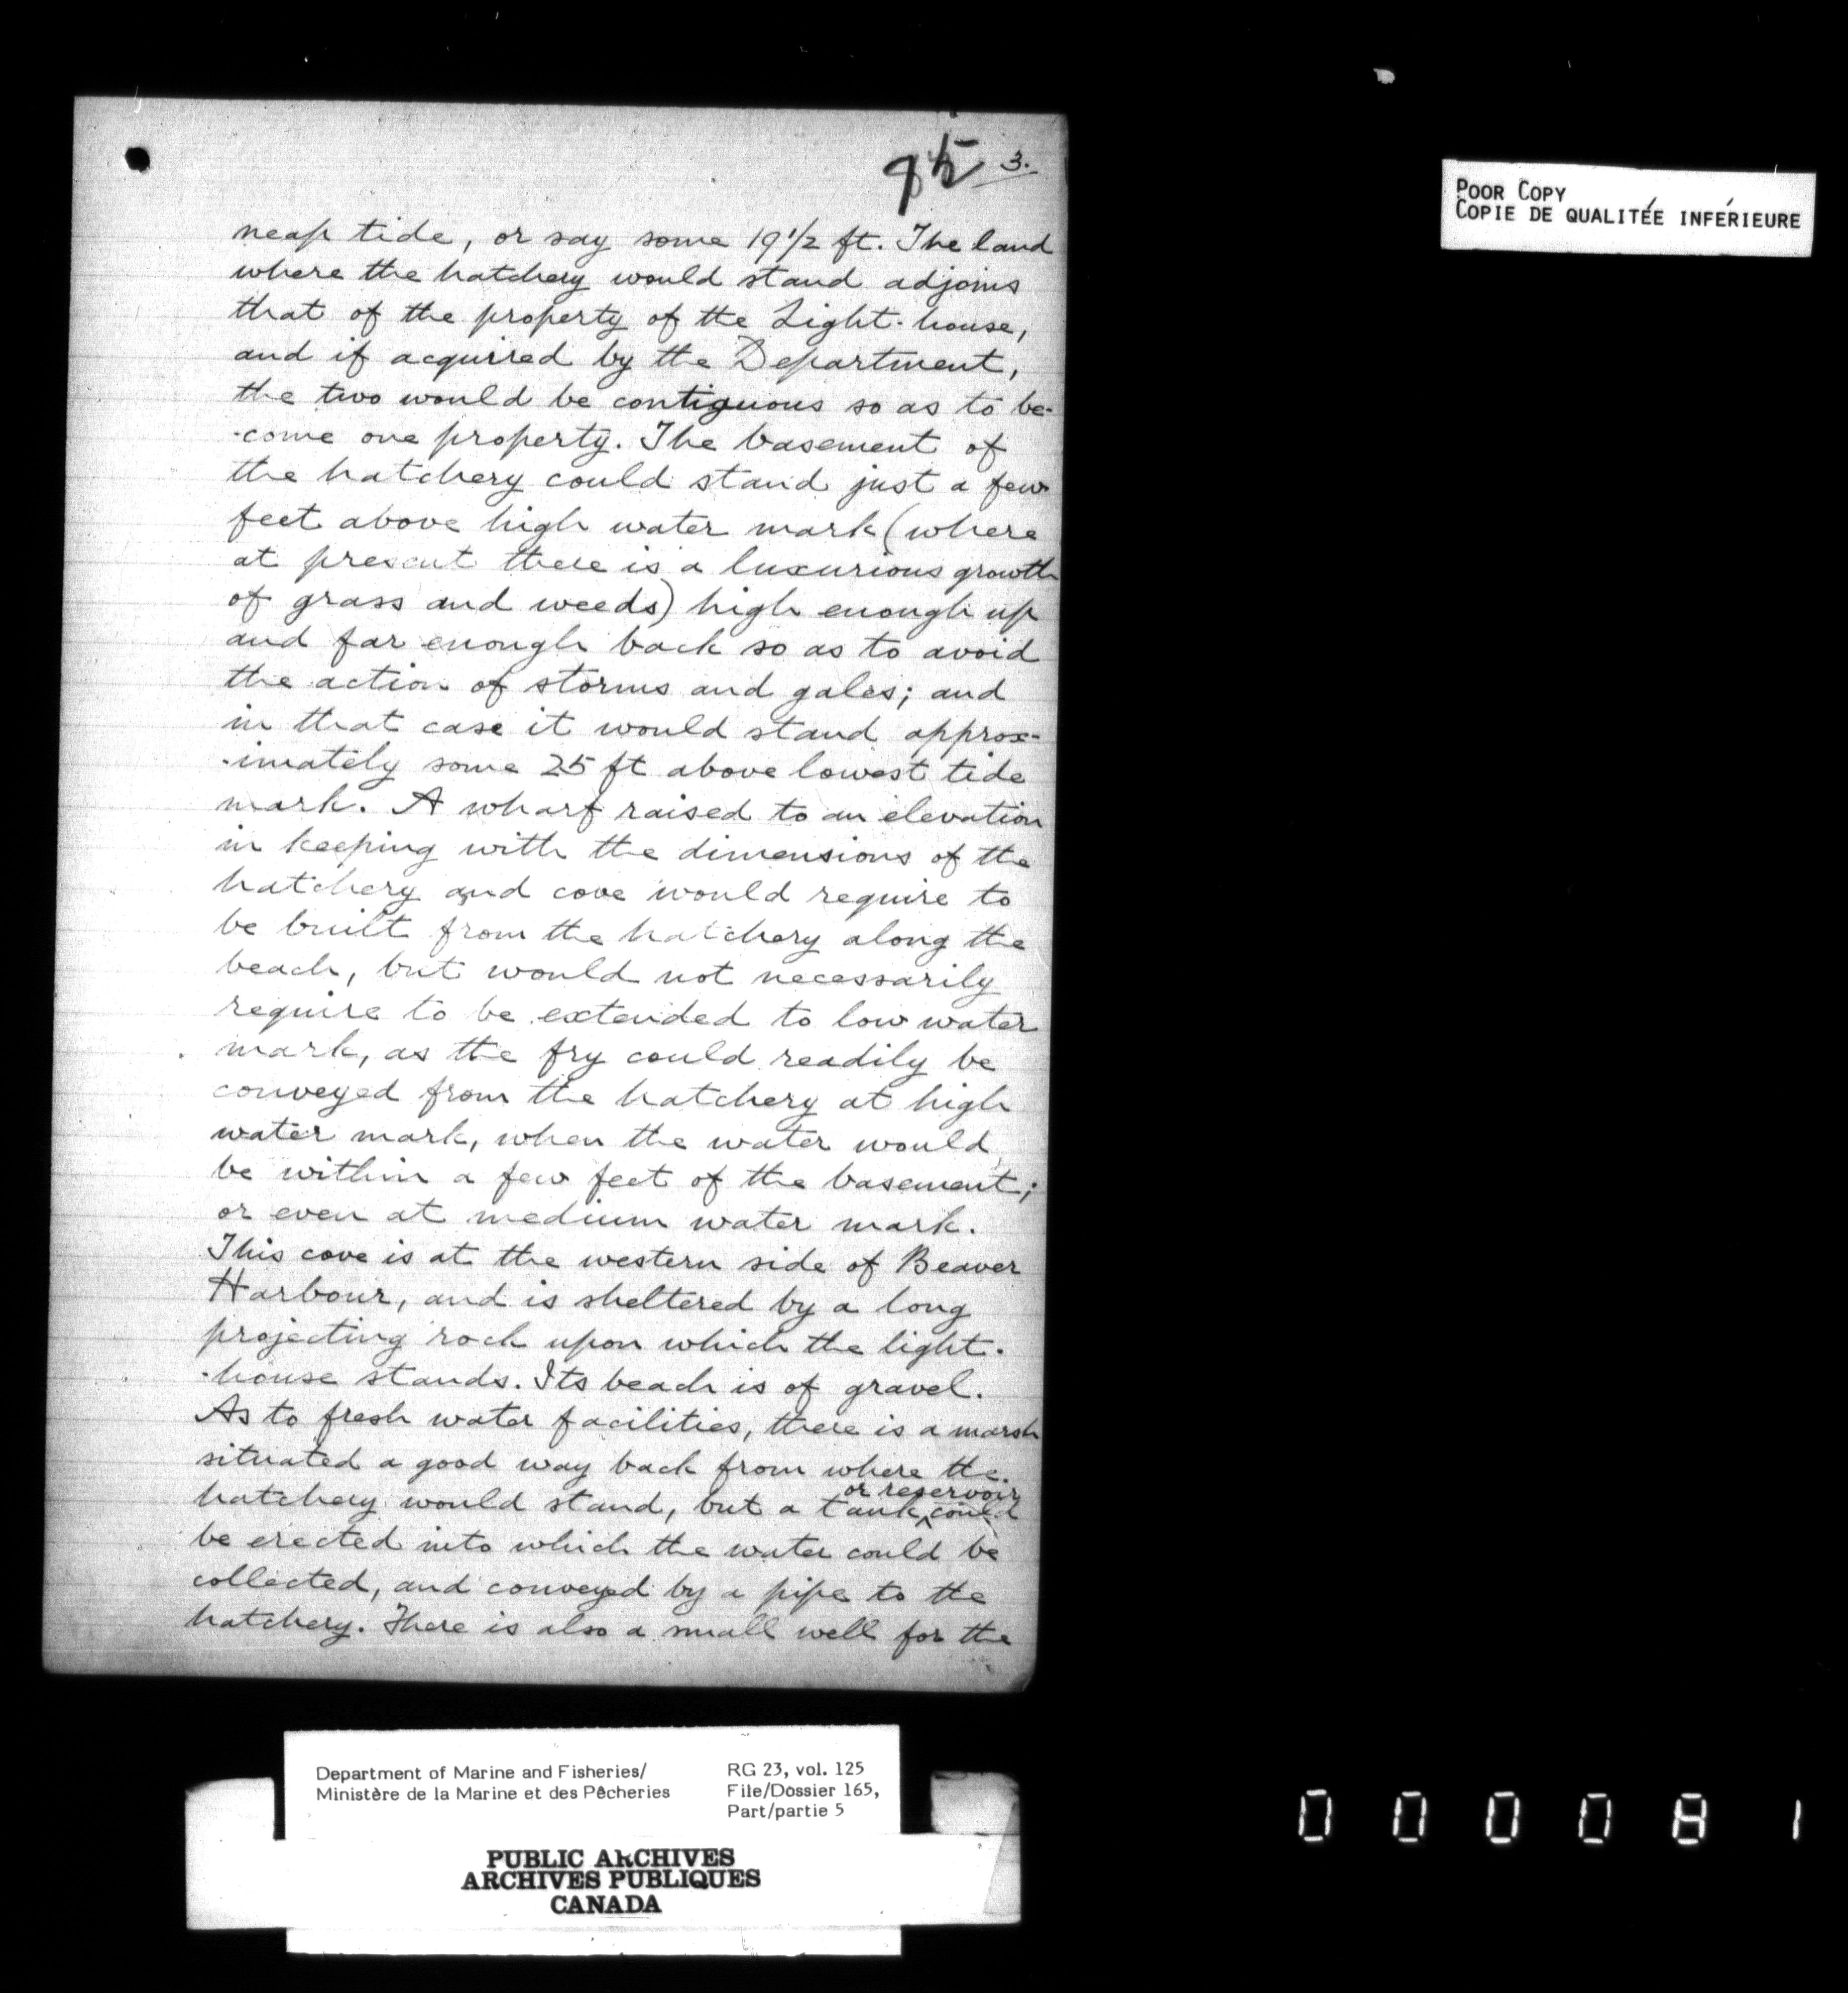 95 3.
neap tide, or say some 19 1/2 ft. The land
where the hatchery would stand adjoins
that of the property of the Light-house,
and if acquired by the Department,
the two would be contiguous so as to be-
-come one property. The basement of
the hatchery could stand just a few
feet above high water mark (where
at present there is a luxurious growth
of grass and weeds) high enough up
and far enough back so as to avoid
the action of storms and gales; and
in that case it would stand approx-
-imately some 25 ft above lowest tide
mark. A wharf raised to an elevation
in keeping with the dimensions of the
hatchery and cove would require to
be built from the hatchery along the
beach, but would not necessarily
require to be extended to low water
mark, as the fry could readily be
conveyed from the hatchery at high
water mark, when the water would
be within a few feet of the basement;
or even at medium water mark.
This cove is at the western side of Beaver
Harbour, and is sheltered by a long
projecting rock upon which the light-
-house stands. Its beach is of gravel.
As to fresh water facilities, there is a marsh
situated a good way back from where the
or reservoir
hatchery would stand, but a tank ^ could
be erected into which the water could be
collected, and conveyed by a pipe to the
hatchery. There is also a small well for the
POOR COPY
COPIE DE QUALITÉE INFÉRIEURE
Department of Marine and Fisheries/
Ministère de la Marine et des Pêcheries
RG 23, vol. 125
File/Dossier 165,
Part/partie 5
PUBLIC ARCHIVES
ARCHIVES PUBLIQUES
CANADA
000081